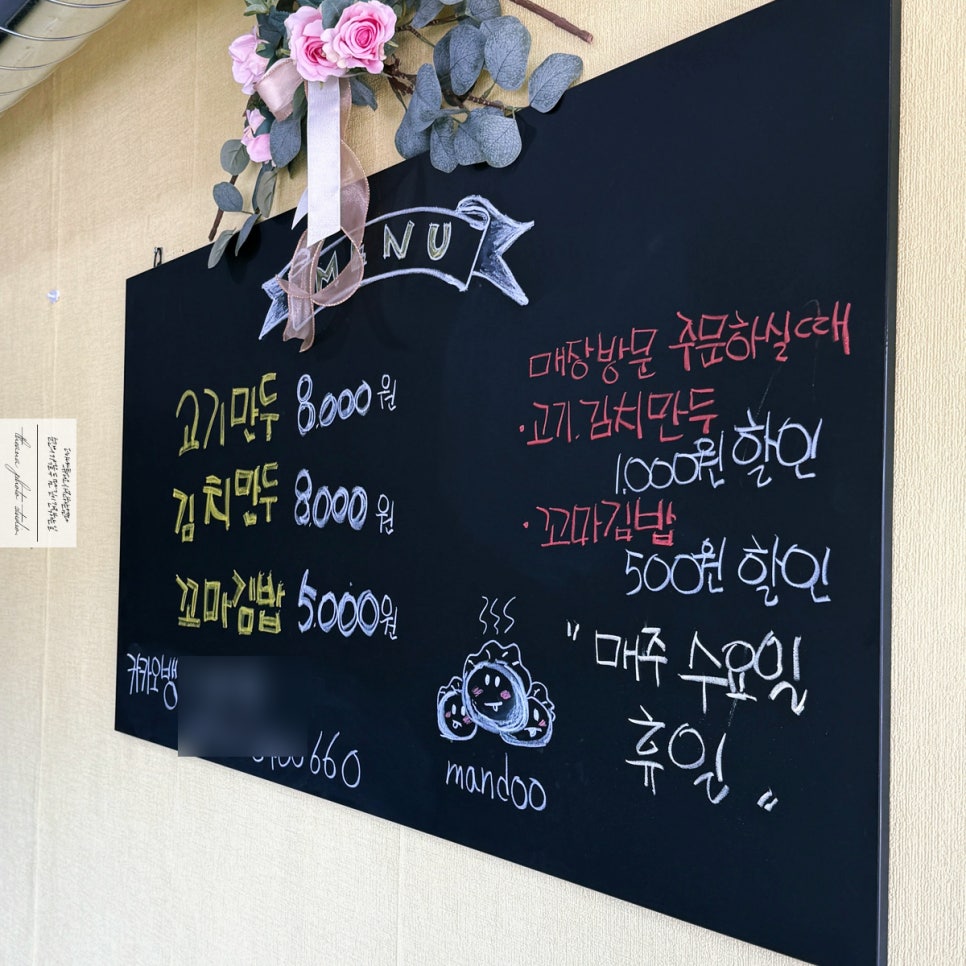 MENU
고기만두 8.000원
김치만두 8.000원
꼬마김밥 5.000원
카카오뱅
660
mandoo
매장방문 주문하실때
·고기.김치만두
1.000원 할인
·꼬마김밥
500원 할인
"매주 수요일
휴일"
thana photo studio